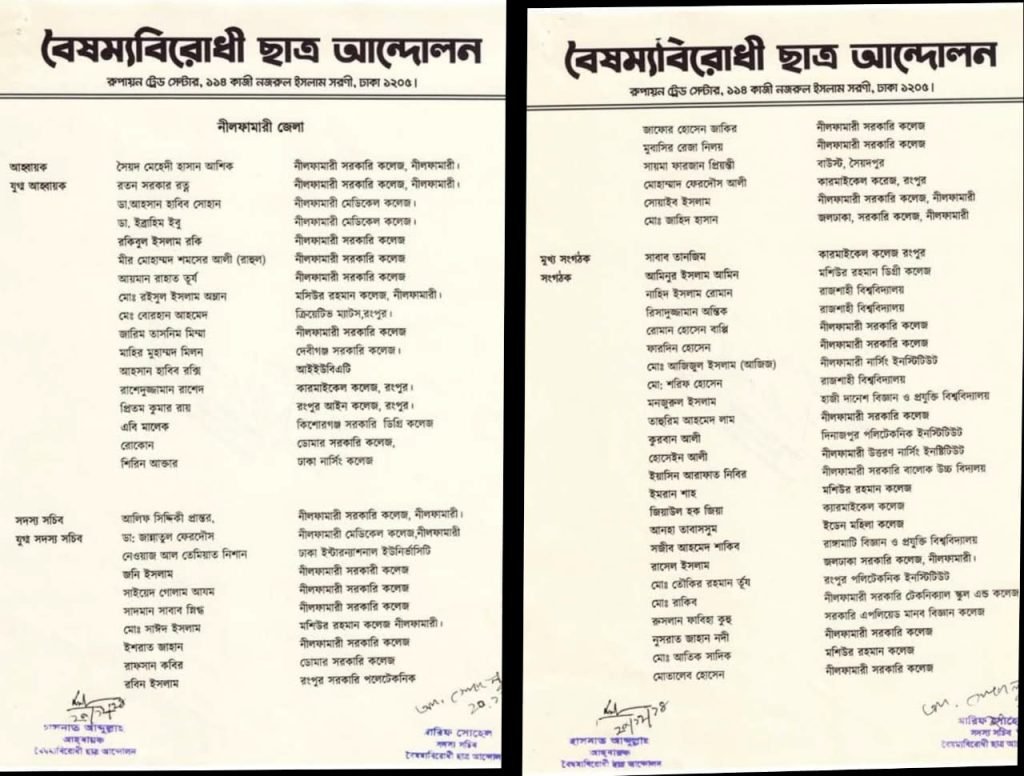 বৈষম্যবিরোধী ছাত্র আন্দোলন
রুপায়ন ট্রেড সেন্টার, ১১৪ কাজী নজরুল ইসলাম সরণী, ঢাকা ১২০৫।
নীলফামারী জেলা
আহ্বায়ক সৈয়দ মেহেদী হাসান আশিক নীলফামারী সরকারি কলেজ, নীলফামারী।
যুগ্ম আহ্বায়ক রতন সরকার রত্ন নীলফামারী সরকারি কলেজ, নীলফামারী।
ডা.আহসান হাবিব সোহান নীলফামারী মেডিকেল কলেজ।
ডা. ইব্রাহিম ইবু নীলফামারী মেডিকেল কলেজ।
রকিবুল ইসলাম রকি নীলফামারী সরকারি কলেজ
মীর মোহাম্মদ শমসের আলী (রাহুল) নীলফামারী সরকারি কলেজ
আয়মান রাহাত তূর্য নীলফামারী সরকারি কলেজ
মোঃ রইসুল ইসলাম অম্লান মসিউর রহমান কলেজ, নীলফামারী।
মেঃ বোরহান আহমেদ ক্রিয়েটিভ ম্যাটস,রংপুর।
জারিম তাসনিম মিম্মা নীলফামারী সরকারি কলেজ
মাহির মুহাম্মদ মিলন দেবীগঞ্জ সরকারি কলেজ।
আহসান হাবিব রক্সি আইইউবিএটি
রাশেদুজ্জামান রাশেদ কারমাইকেল কলেজ, রংপুর।
প্রিতম কুমার রায় রংপুর আইন কলেজ, রংপুর।
এবি মালেক কিশোরগঞ্জ সরকারি ডিগ্রি কলেজ
রোকোন ডোমার সরকারি কলেজ,
শিরিন আক্তার ঢাকা নার্সিং কলেজ
সদস্য সচিব আলিফ সিদ্দিকী প্রান্তর, নীলফামারী সরকারি কলেজ, নীলফামারী।
যুগ্ম সদস্য সচিব ডা: জান্নাতুল ফেরদৌস নীলফামারী মেডিকেল কলেজ,নীলফামারী
নেওয়াজ আল তেমিয়াত নিশান ঢাকা ইন্টারন্যাশনাল ইউনির্ভাসিটি
জনি ইসলাম নীলফামারী সরকারী কলেজ
সাইয়েদ গোলাম আযম নীলফামারী সরকারি কলেজ
সাদমান সাবাব স্নিগ্ধ নীলফামারী সরকারি কলেজ
মোঃ সাঈদ ইসলাম মশিউর রহমান কলেজ নীলফামারী।
ইশরাত জাহান নীলফামারী সরকারি কলেজ
রাফসান কবির ডোমার সরকারি কলেজ
রবিন ইসলাম রংপুর সরকারি পলেটেকনিক
হাসনাত আব্দুল্লাহ
আহবায়ক
বৈষম্যবিরোধী ছাত্র আন্দোলন
আরিফ সোহেল
সদস্য সচিব
বৈষম্যবিরোধী ছাত্র আন্দোলন
বৈষম্যবিরোধী ছাত্র আন্দোলন
রুপায়ন ট্রেড সেন্টার, ১১৪ কাজী নজরুল ইসলাম সরণী, ঢাকা ১২০৫।
জাফোর হোসেন জাকির নীলফামারী সরকারি কলেজ
মুবাসির রেজা নিলয় নীলফামারী সরকারি কলেজ
সায়মা ফারজান প্রিয়ন্তী বাউস্ট, সৈয়দপুর
মোহাম্মাদ ফেরদৌস আলী কারমাইকেল করেজ, রংপুর
সোয়াইব ইসলাম নীলফামারী সরকারি কলেজ, নীলফামারী
মোঃ জাহিদ হাসান জলঢাকা, সরকারি কলেজ, নীলফামারী
মুখ্য সংগঠক সাবাব তানজিম কারমাইকেল কলেজ রংপুর
সংগঠক আমিনুর ইসলাম আমিন মশিউর রহমান ডিগ্রী কলেজ
নাহিদ ইসলাম রোমান রাজশাহী বিশ্ববিদ্যালয়
রিসাদুজ্জামান অন্তিক রাজশাহী বিশ্ববিদ্যালয়
রোমান হোসেন বাপ্পি নীলফামারী সরকারি কলেজ
ফারদিন হোসেন নীলফামারী সরকারি কলেজ
মোঃ আজিজুল ইসলাম (আজিজ) নীলফামারী নার্সিং ইনস্টিটিউট
মো: শরিফ হোসেন রাজশাহী বিশ্ববিদ্যালয়
মনজুরুল ইসলাম হাজী দানেশ বিজ্ঞান ও প্রযুক্তি বিশ্ববিদ্যালয়
তাহুরিম আহমেদ লাম নীলফামারী সরকারি কলেজ
কুরবান আলী দিনাজপুর পলিটেকনিক ইনস্টিটিউট
হোসেইন আলী নীলফামারী উত্তরণ নার্সিং ইনষ্টিটিউট
ইয়াসিন আরাফাত নিবির নীলফামারী সরকারি বালোক উচ্চ বিদ্যলয়
ইমরান শাহ মশিউর রহমান কলেজ
জিয়াউল হক জিয়া ক্যারমাইকেল কলেজ
আনহা তাবাসসুম ইডেন মহিলা কলেজ
সজীব আহমেদ শাকিব রাঙ্গামাটি বিজ্ঞান ও প্রযুক্তি বিশ্ববিদ্যালয়
রাসেল ইসলাম জলঢাকা সরকারি কলেজ, নীলফামারী।
মোঃ তৌকির রহমান র্তূয রংপুর পলিটেকনিক ইনস্টিটিউট
মোঃ রাকিব নীলফামারী সরকারি টেকনিক্যাল স্কুল এন্ড কলেজ
রুসলান ফাবিহা কুহু সরকারি এপলিয়েড মানব বিজ্ঞান কলেজ
নুসরাত জাহান নদী নীলফামারী সরকারি কলেজ
মোঃ আতিক সাদিক মশিউর রহমান কলেজ
মোতালেব হোসেন নীলফামারী সরকারি কলেজ
হাসনাত আব্দুল্লাহ
আহবায়ক
বৈষম্যবিরোধী ছাত্র আন্দোলন
আরিফ সোহেল
সদস্য সচিব
বৈষম্যবিরোধী ছাত্র